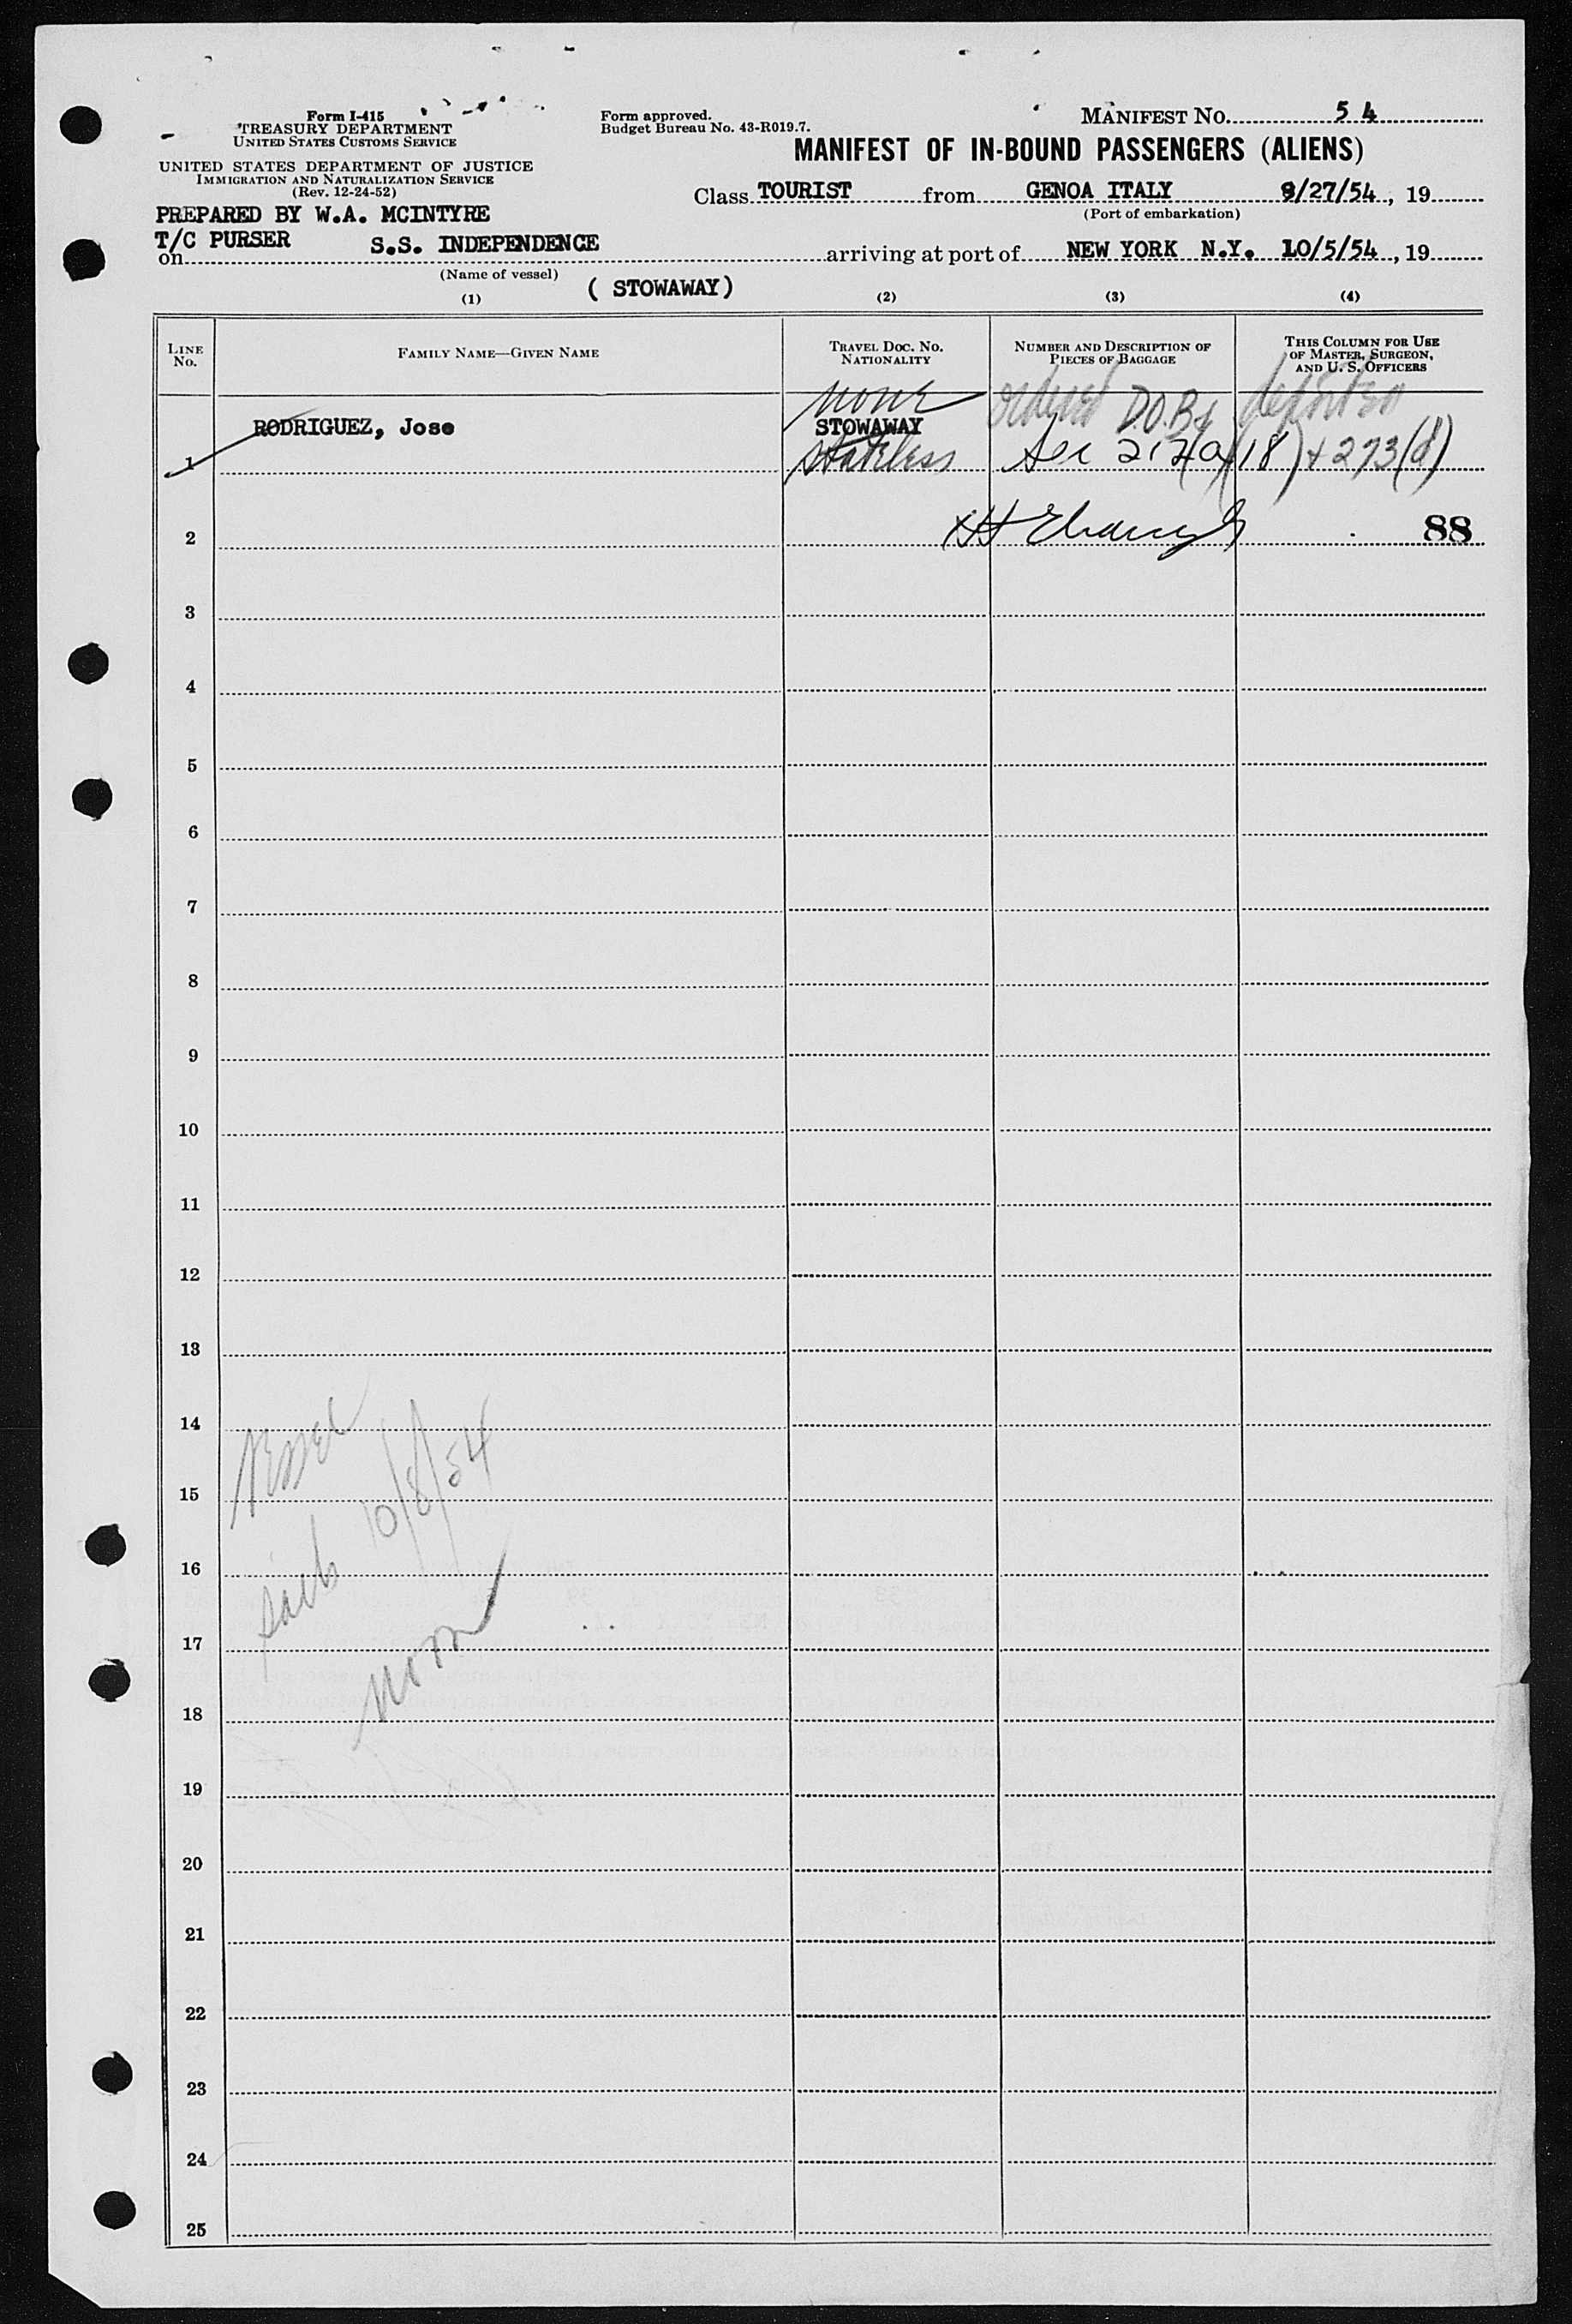 Form I-415
TREASURY DEPARTMENT
UNITED STATES CUSTOMS SERVICE
UNITED STATES DEPARTMENT OF JUSTICE
IMMIGRATION AND NATURALIZATION SERVICE
(Rev. 12-24-52)
Form approved.
Budget Bureau No. 43-R019.7.
MANIFEST NO. 54
MANIFEST OF IN-BOUND PASSENGERS (ALIENS)
Class TOURIST from GENOA ITALY 9/27/54, 19
(Port of embarkation)
PREPARED BY W.A. MCINTYRE
T/C PURSER
on S.S. INDEPENDENCE arriving at port of NEW YORK N.Y. 10/5/54, 19
(Name of vessel)
( STOWAWAY)
(1) (2) (3) (4)
LINE No.
FAMILY NAME—GIVEN NAME
TRAVEL DOC. NO. NATIONALITY
NUMBER AND DESCRIPTION OF PIECES OF BAGGAGE
THIS COLUMN FOR USE OF MASTER, SURGEON, AND U. S. OFFICERS
none ordered deported
RODRIGUEZ, Jose STOWAWAY
1 Stateless Sec 212(a)(18) + 273(d)
2 88
3
4
5
6
7
8
9
10
11
12
13
14
15
16
17
18
19
20
21
22
23
24
25
Vessel
sails 10/8/54
noon